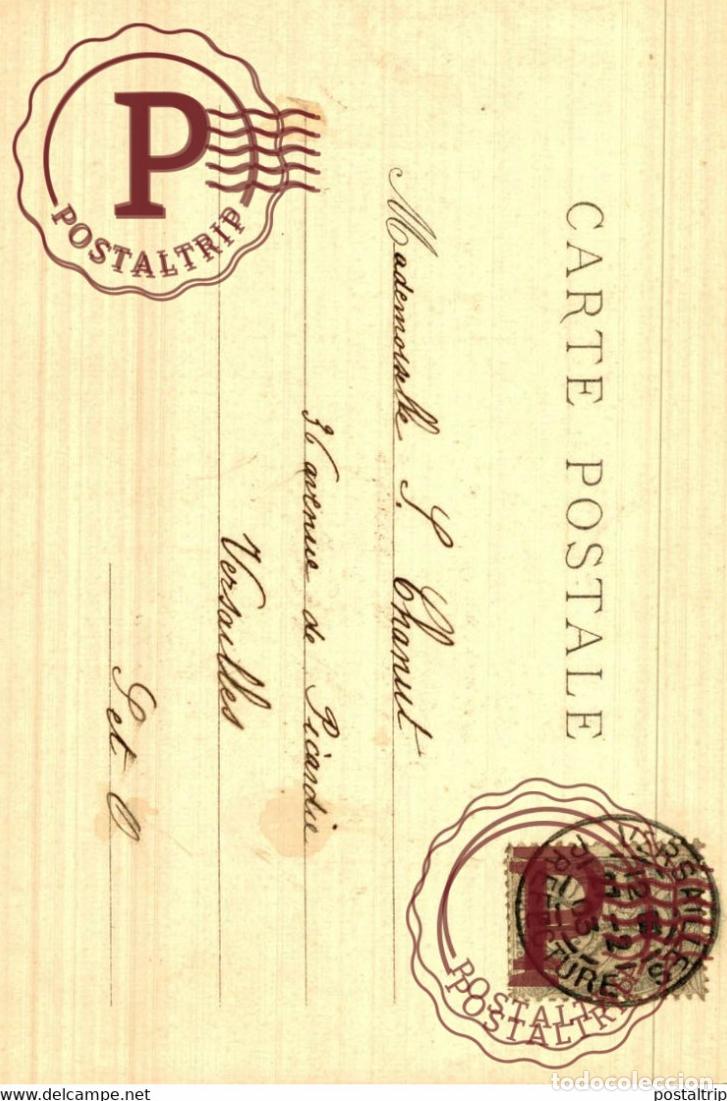 P
POSTALTRIP
CARTE POSTALE
Mademoiselle S. Chanut
36 avenue de Picardie
Versailles
S et O
VERSAILLES
PREFECTURE
POSTALTRIP
POSTALTRIP
todocoleccion
https://www.ebay.net
postaltrip